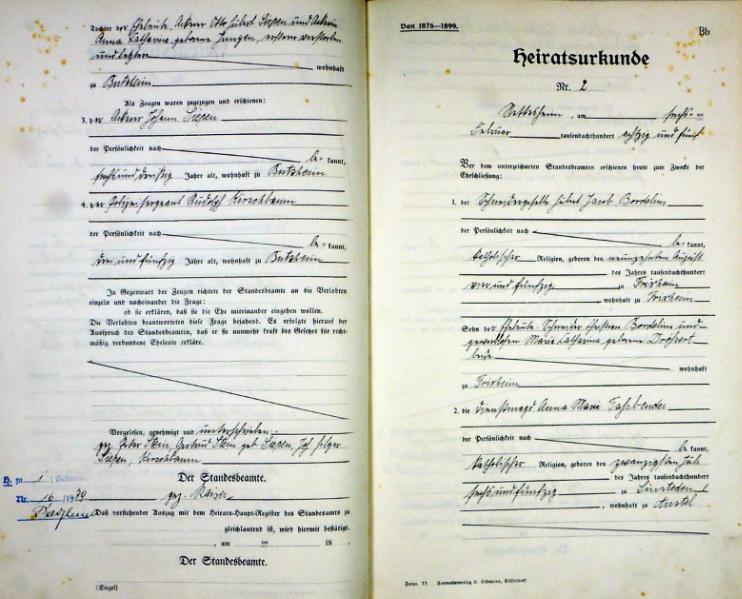 Tochter der Eheleute, Ackerer Otto Hubert Siepen und
Anna Catharina geborene Jungen, ersterer verstorben
und letztere
wohnhaft
zu Butzheim
Als Zeugen waren zugezogen und erschienen:
3. der Ackerer Johann Siepen
der Persönlichkeit nach
be kannt,
sechsunddreißig Jahre alt, wohnhaft zu Butzheim
4. der Polizeisergeant Rudolph Kirschbaum
der Persönlichkeit nach
be kannt,
dreiundfünfzig Jahre alt, wohnhaft zu Butzheim
In Gegenwart der Zeugen richtete der Standesbeamte an die Verlobten
einzeln und nacheinander die Frage:
ob sie erklären, daß sie die Ehe miteinander eingehen wollen.
Die Verlobten beantworteten diese Frage bejahend. Es erfolgte hierauf der
Ausspruch des Standesbeamten, daß er sie nunmehr kraft des Gesetzes für recht-
mäßig verbundene Eheleute erkläre.
Vorgelesen, genehmigt und unterschrieben
gez. Peter Stein, Gertrud Stein geb. Siepen, Joh.
Siepen, Kirschbaum
Der Standesbeamte.
zu 1
Nr. 16
gez. Kaiser
Daß vorstehender Auszug mit dem Heirats-Haupt-Register des Standesamts zu
gleichlautend ist, wird hiermit bestätigt.
, am ten 18
Der Standesbeamte.
(Siegel)
Von 1876—1899.
Bb
Heiratsurkunde
Nr. 2
Nettesheim, am sechs ten
Februar tausendachthundert achtzig und fünf
Vor dem unterzeichneten Standesbeamten erschienen heute zum Zwecke der
Eheschließung:
1. der Schneidergeselle Hubert Jacob Bordelius
der Persönlichkeit nach
be kannt,
katholischer Religion, geboren den neunzehnten August
des Jahres tausendachthundert
vierundfünfzig zu Frixheim
, wohnhaft zu Frixheim
Sohn der Eheleute Schneider Christian Bordelius und
Maria Catharina geborene
beide
wohnhaft
zu Frixheim
2. die Dienstmagd Anna Maria Faßbender
der Persönlichkeit nach
be kannt,
katholischer Religion, geboren den zwanzigsten Juli
des Jahres tausendachthundert
sechsundfünfzig zu Sinsteden
, wohnhaft zu Anstel